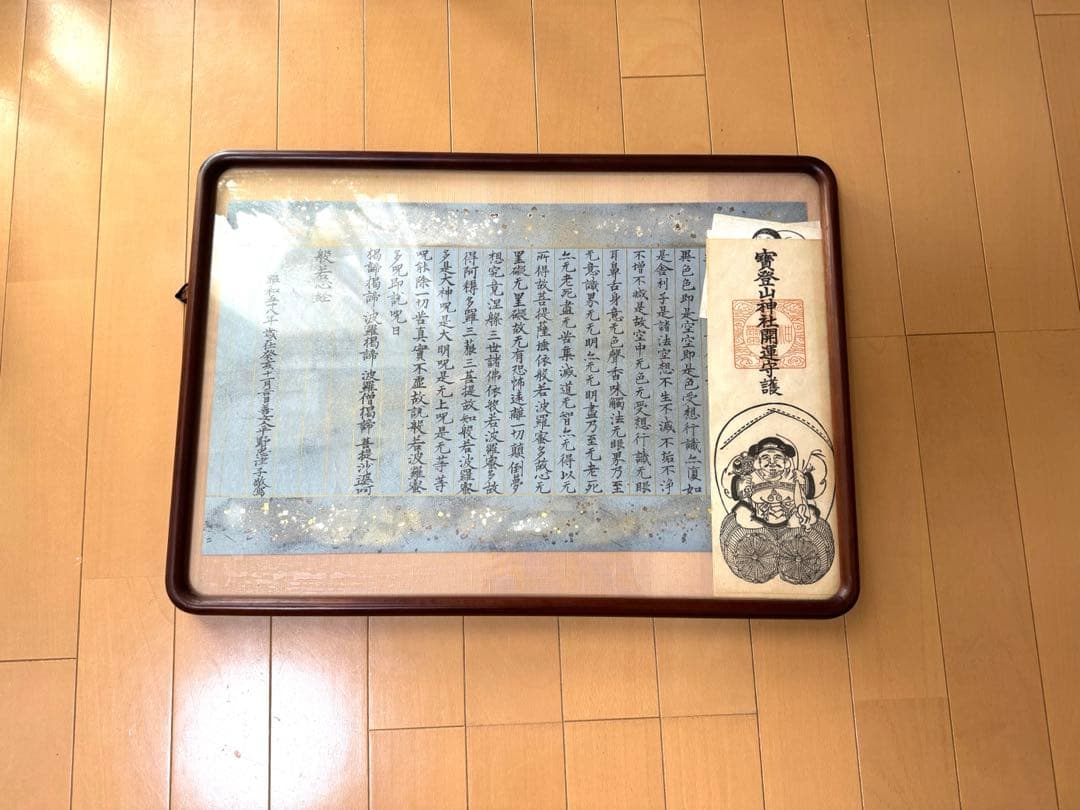 寶登山神社開運守護
異色色即是空空即是色受想行識亦復如
是舍利子是諸法空想不生不滅不垢不浄
不增不減是故空中无色无受想行識无眼
耳鼻舌身意无色聲香味觸法无眼界乃至
无意識界无无明亦无无明盡乃至无老死
亦无老死盡无苦集滅道无智亦无得以无
所得故菩提薩埵依般若波羅蜜多故心无
罣礙无罣礙故无有恐怖遠離一切顛倒夢
想究竟涅槃三世諸佛依般若波羅蜜多故
得阿耨多羅三藐三菩提故知般若波羅蜜
多是大神呪是大明呪是无上呪是无等等
呪能除一切苦真實不虚故説般若波羅蜜
多呪即説呪曰
揭諦揭諦 波羅揭諦 波羅僧揭諦 菩提沙婆呵
般若心経
昭和五八年歳在癸亥